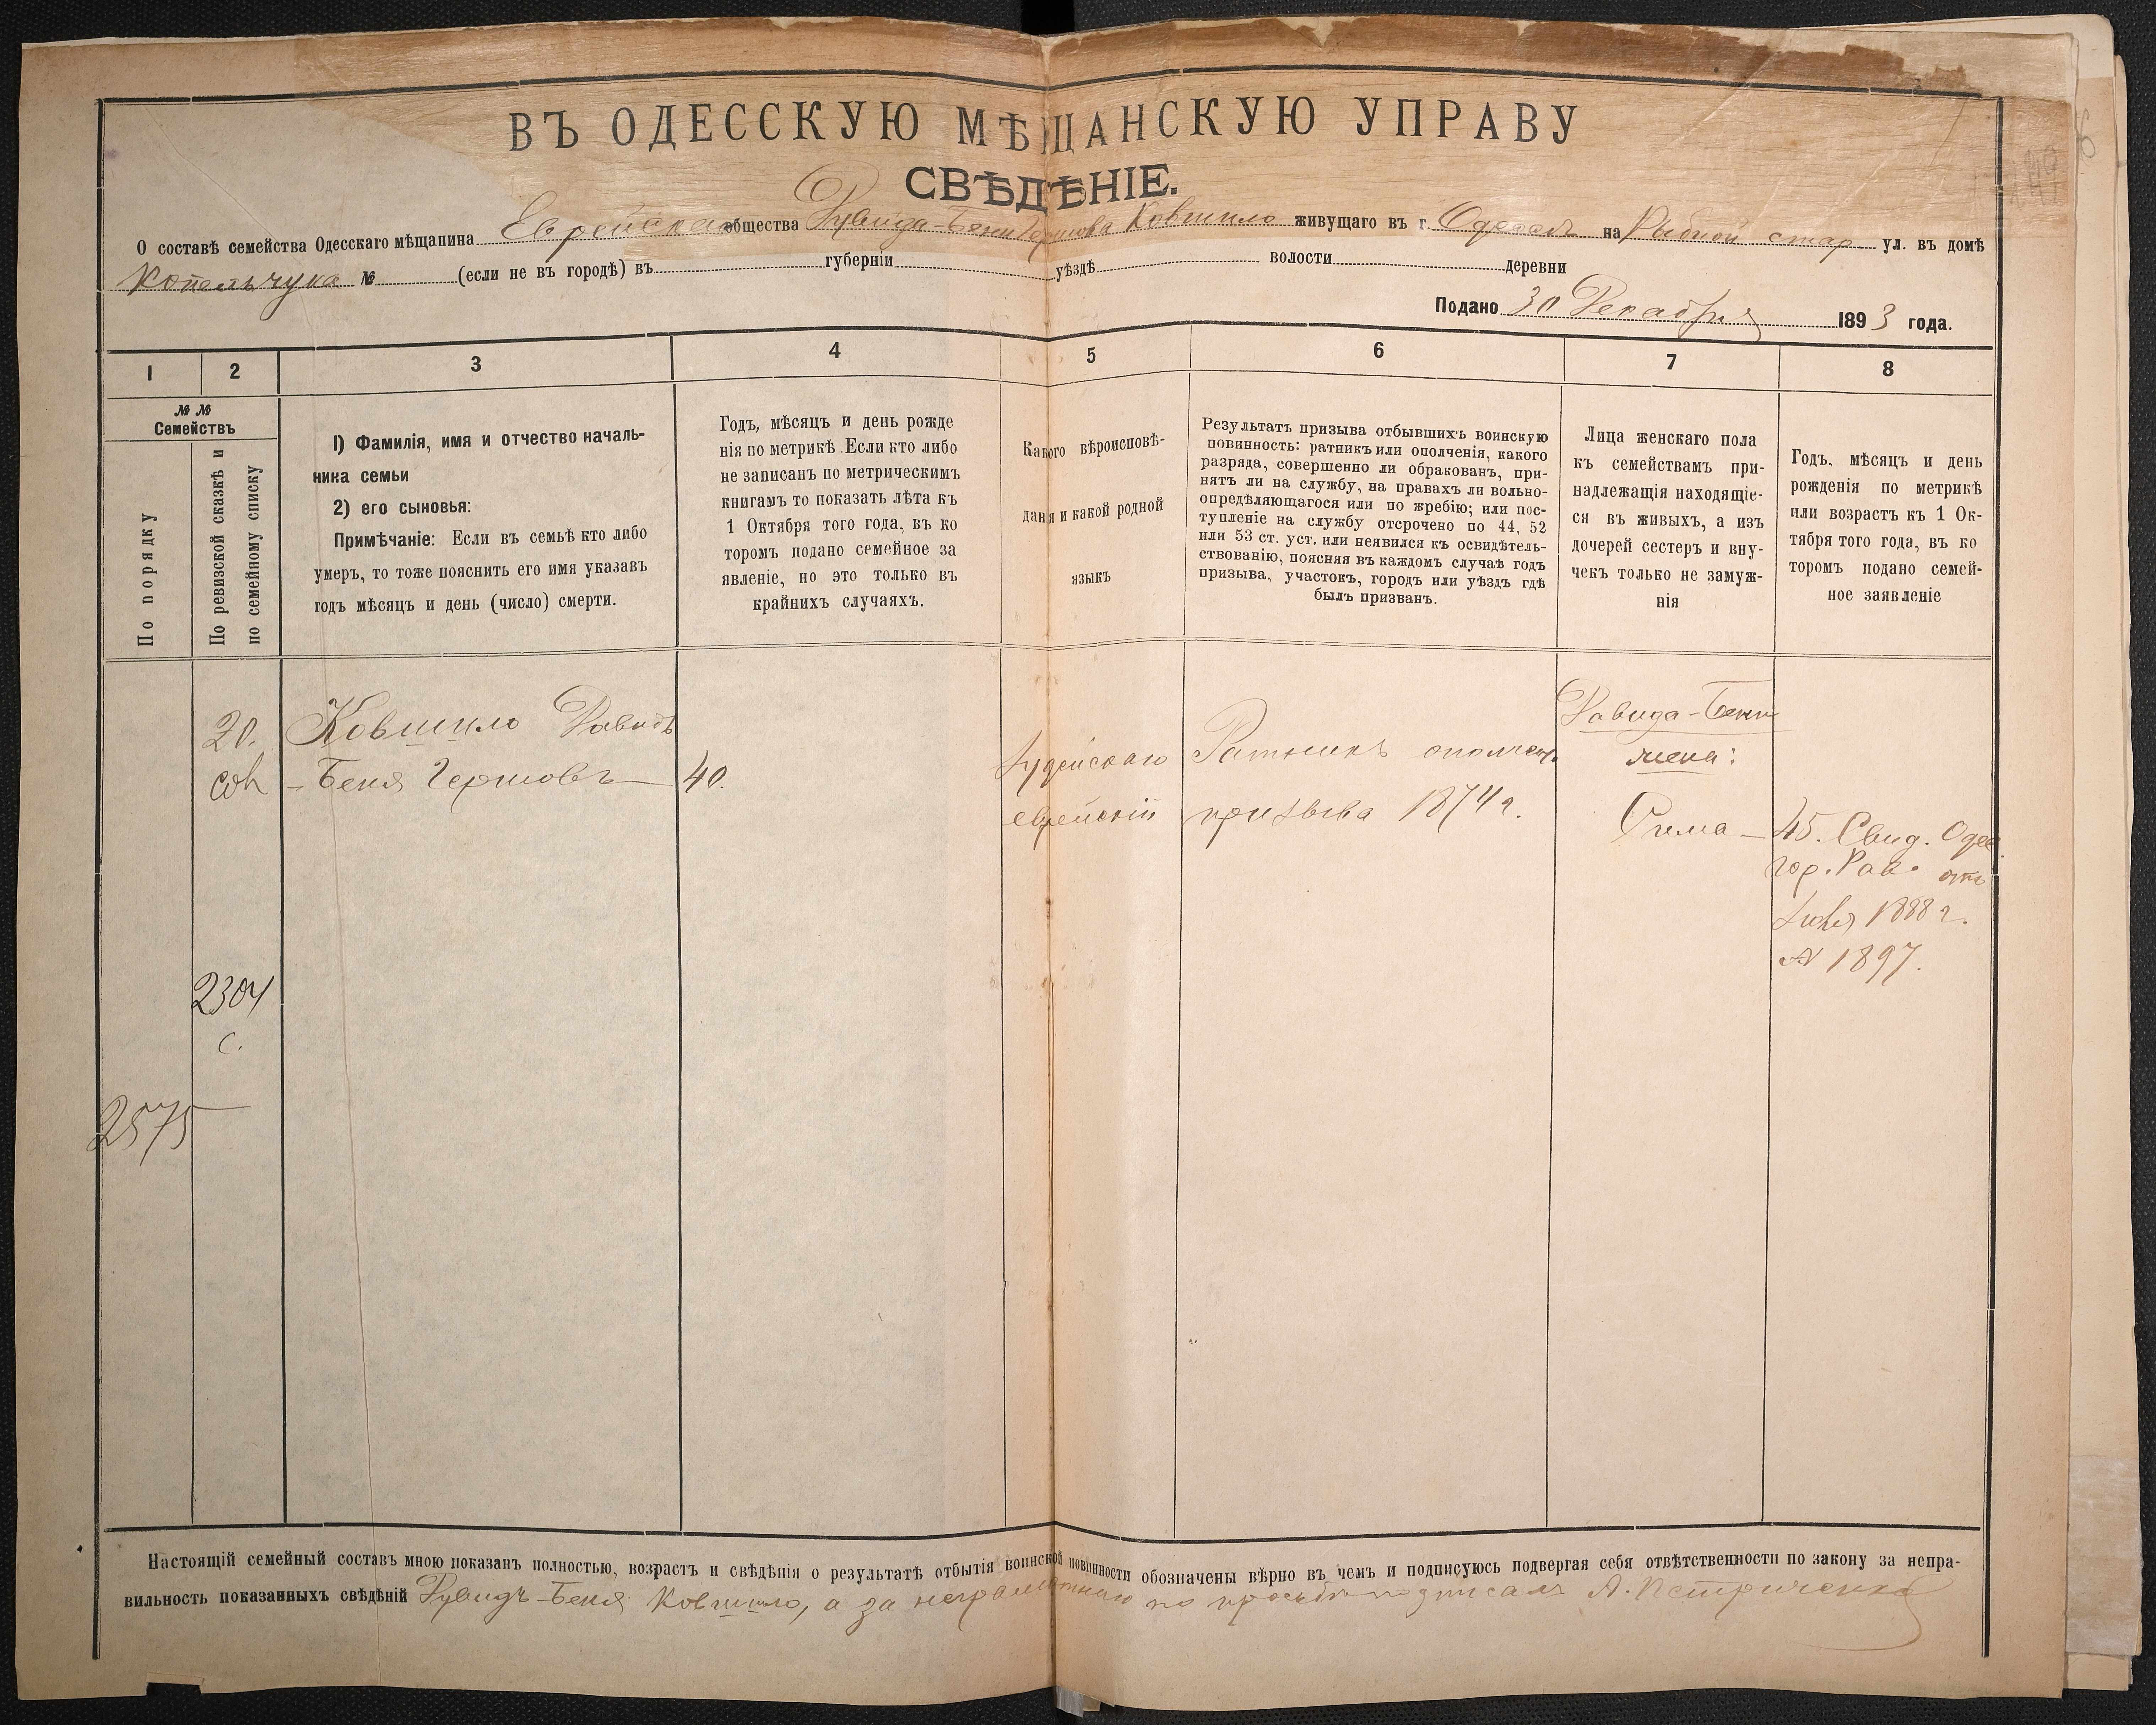 ВЪ ОДЕССКУЮ МѢЩАНСКУЮ УПРАВУ
СВѢДѢНІЕ.
О составѣ семейства Одесскаго мѣщанина Еврейскаго общества Давида-Бени Гершова Ковшило живущаго въ г. Одессѣ на Рыбной стар. ул. въ домѣ
Копельчука № (если не въ городѣ) въ губерніи уѣздѣ волости деревни
Подано 30 Декабря 1893 года.
1 2 3 4 5 6 7 8
№ №
Семействъ
По порядку
По ревизской сказкѣ и
по семейному списку
1) Фамилія, имя и отчество началь-
ника семьи
2) его сыновья:
Примѣчаніе: Если въ семьѣ кто либо
умеръ, то тоже пояснить его имя указавъ
годъ мѣсяцъ и день (число) смерти.
Годъ, мѣсяцъ и день рожде
нія по метрикѣ. Если кто либо
не записанъ по метрическимъ
книгамъ то показать лѣта къ
1 Октября того года, въ ко
торомъ подано семейное за
явленіе, но это только въ
крайнихъ случаяхъ.
Какого вѣроисповѣ-
данія и какой родной
языкъ
Результатъ призыва отбывшихъ воинскую
повинность: ратникъ или ополченія, какого
разряда, совершенно ли обракованъ, при-
нятъ ли на службу, на правахъ ли вольно-
опредѣляющагося или по жребію; или пос-
тупленіе на службу отсрочено по 44, 52
или 53 ст. уст, или неявился къ освидѣтель-
ствованію, поясняя въ каждомъ случаѣ годъ
призыва, участокъ, городъ или уѣздъ гдѣ
былъ призванъ.
Лица женскаго пола
къ семействамъ при-
надлежащія находящіе-
ся въ живыхъ, а изъ
дочерей сестеръ и вну-
чекъ только не замуж-
нія
Годъ, мѣсяцъ и день
рожденія по метрикѣ
или возрастъ къ 1 Ок-
тября того года, въ ко
торомъ подано семей-
ное заявленіе
20.
Ковшило Давидъ
-Беня Гершовъ — 40.
Іудейскаго
еврейскій
Ратникъ ополчен.
призыва 1874 г.
Давида-Бени
жена:
Сима — 45. Свид. Одес.
гор. Рав. отъ
1888 г.
№ 1897.
2304
с.
2575
Настоящій семейный составъ мною показанъ полностью, возрастъ и свѣдѣнія о результатѣ отбытія воинской повинности обозначены вѣрно въ чемъ и подписуюсь подвергая себя отвѣтственности по закону за непра-
вильность показанныхъ свѣдѣній Давидъ-Беня Ковшило, а за неграмотнаго по просьбѣ подписалъ А. Петриченко